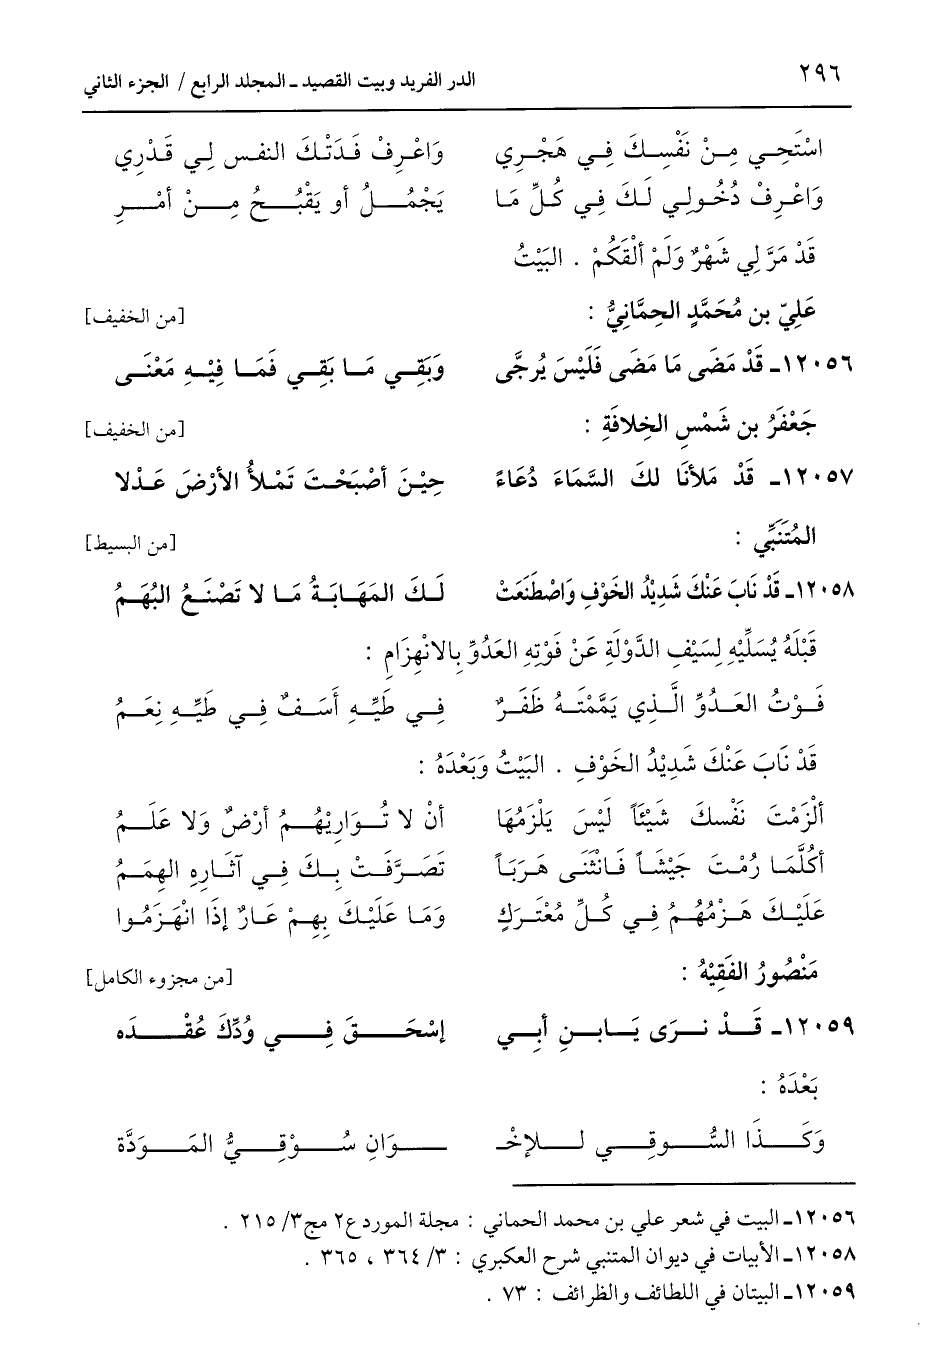 ٢٩٦ الدر الفريد وبيت القصيد ـ المجلد الرابع / الجزء الثاني
اسْتَحِي مِنْ نَفْسِكَ فِي هَجْرِي وَاعْرِفْ فَدَتْكَ النفس لِي قَدْرِي
وَاعْرِفْ دُخُولِي لَكَ فِي كُلِّ مَا يَجْمُلُ أو يَقْبُحُ مِنْ أمْرِ
قَدْ مَرَّ لِي شَهْرٌ وَلَمْ ألْقَكُمْ . البَيْتُ
عَلِيّ بن مُحَمَّدٍ الحِمَّانِيُّ : [من الخفيف]
١٢٠٥٦ـ قَدْ مَضَى مَا مَضَى فَلَيْسَ يُرجَّى وَبَقِي مَا بَقِي فَمَا فِيْهِ مَعْنَى
جَعْفَرُ بن شَمْسِ الخِلافَةِ : [من الخفيف]
١٢٠٥٧ـ قَدْ مَلأنَا لكَ السَّمَاءَ دُعَاءً حِيْنَ أصْبَحْتَ تَمْلأُ الأرْضَ عَدْلا
المُتَنَبِّي : [من البسيط]
١٢٠٥٨ـ قَدْ نَابَ عَنْكَ شَدِيْدُ الخَوْفِ وَاصْطَنَعَتْ لَكَ المَهَابَةُ مَا لا تَصْنَعُ البُهَمُ
قَبْلَهُ يُسَلِّيْهِ لِسَيْفِ الدَّوْلَةِ عَنْ فَوْتِهِ العَدُوِّ بِالانْهِزَامِ :
فَوْتُ العَدُوِّ الَّذِي يَمَّمْتَهُ ظَفَرٌ فِي طَيِّهِ أَسَفٌ فِي طَيِّهِ نِعَمُ
قَدْ نَابَ عَنْكَ شَدِيْدُ الخَوْفِ . البَيْتُ وَبَعْدَهُ :
ألْزَمْتَ نَفْسكَ شَيْئَاً لَيْسَ يَلْزَمُهَا أنْ لا تُوَارِيْهُمُ أرْضٌ وَلا عَلَمُ
أكُلَّمَا رُمْتَ جَيْشَاً فَانْثَنَى هَرَبَاً تَصَرَّفَتْ بِكَ فِي آثَارِهِ الهِمَمُ
عَلَيْكَ هَزْمُهُمُ فِي كُلِّ مُعْتَرَكٍ وَمَا عَلَيْكَ بِهِمْ عَارٌ إذَا انْهَزَمُوا
مَنْصُورُ الفَقِيْهُ : [من مجزوء الكامل]
١٢٠٥٩ـ قَدْ نرَى يَابنِ أبي إسْحَقَ فِي وُدِّكَ عُقْدَه
بَعْدَهُ :
وَكَذَا السُّوقِي لِلإخْـ ـوَانِ سُوْقِيُّ المَوَدَّة
١٢٠٥٦ـ البيت في شعر علي بن محمد الحماني : مجلة المورد ع٢ مج٣/ ٢١٥ .
١٢٠٥٨ـ الأبيات في ديوان المتنبي شرح العكبري : ٣/ ٣٦٤ ، ٣٦٥ .
١٢٠٥٩ـ البيتان في اللطائف والظرائف : ٧٣ .